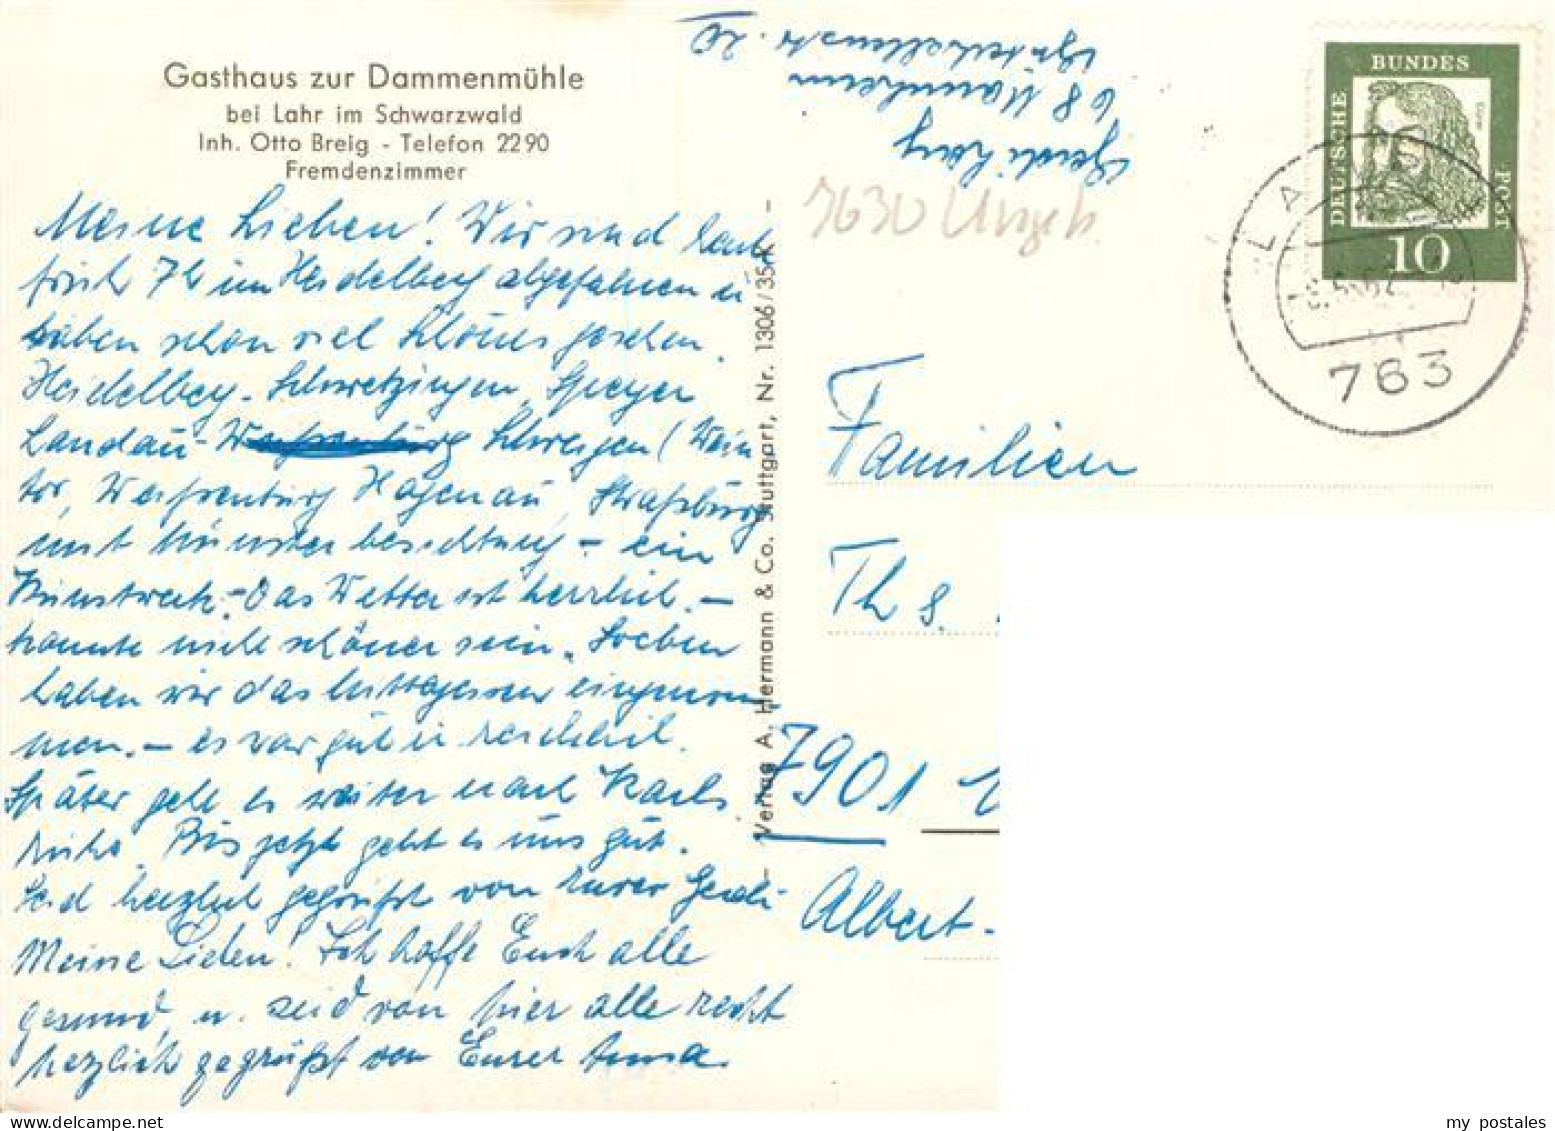 Gasthaus zur Dammenmühle
bei Lahr im Schwarzwald
Inh. Otto Breig - Telefon 2290
Fremdenzimmer
Meine Lieben! Wir sind heute
früh 7h in Heidelberg abgefahren u
haben schon viel Schönes gesehen.
Heidelberg - Schwetzingen, Speyer
Landau - Schweigen (Wein
tor, Weißenburg Hagenau, Straßburg
mit Münsterbesichtung - ein
Kunstwerk. - Das Wetter ist herrlich. -
konnte nicht schöner sein. Soeben
haben wir das Mittagessen eingenom
men. - es war gut u reichlich.
Später geht es weiter nach Karls
ruhe. Bis jetzt geht es uns gut.
Seid herzlich gegrüßt von Eurer Gerdi
Meine Lieben! Ich hoffe Euch alle
gesund, u. seid von hier alle recht
herzlich gegrüßt von Eurer Anna
Verlag A. Hermann & Co. Stuttgart, Nr. 1306/35R
68 Mannheim
7630 Umgeb.
DEUTSCHE BUNDESPOST
Dürer
10
LAHR
763
Familien
Ths.
7901
Albert-
my postales